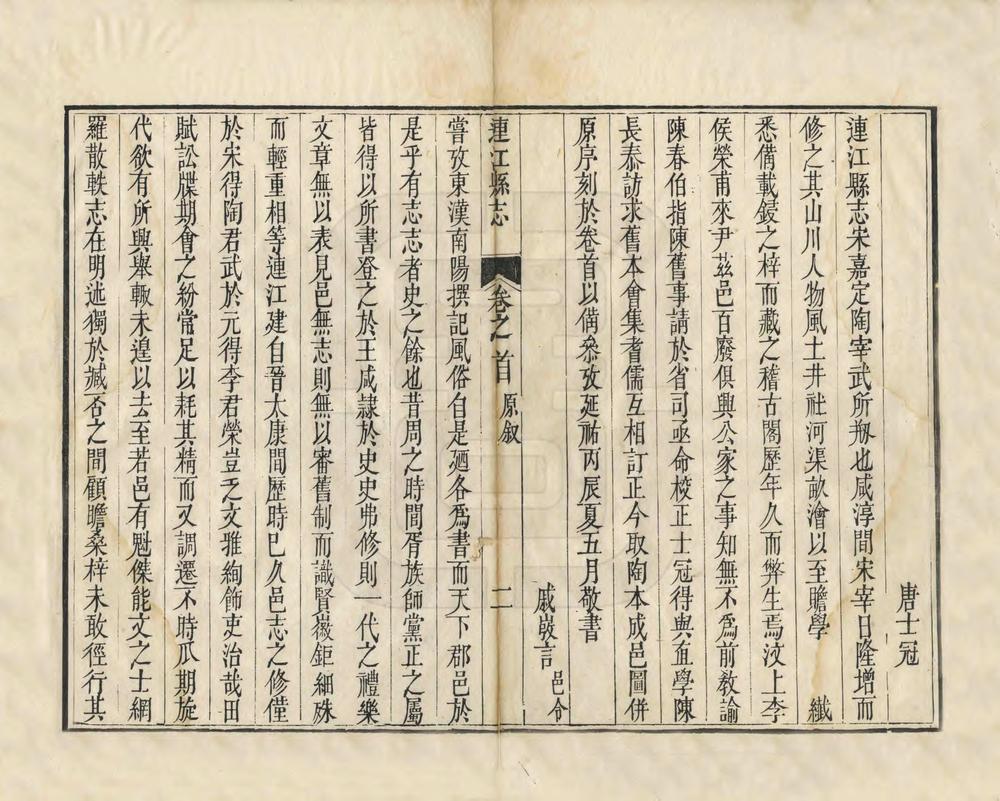 唐士冠
連江縣志宋嘉定陶宰武所剏也咸淳間宋宰日隆增而
修之其山川人物風土井社河渠畝澮以至贍學 纖
悉備載鋟之梓而藏之稽古閣歷年久而弊生焉汶上李
侯榮甫來尹茲邑百廢俱興公家之事知無不爲前教諭
陳春伯指陳舊事請於省司亟命校正士冠得與直學陳
長泰訪求舊本會集耆儒互相訂正今取陶本成邑圖併
原序刻於卷首以備叅攷延祐丙辰夏五月敬書
戚崶言邑令
連江縣志 卷之首 原叙 二
嘗攷東漢南陽撰記風俗自是廼各爲書而天下郡邑於
是乎有志志者史之餘也昔周之時間胥族師黨正之屬
皆得以所書登之於王咸隷於史史弗修則一代之禮樂
文章無以表見邑無志則無以審舊制而識賢嶶鉅細殊
而輕重相等連江建自晉太康間歷時已久邑志之修僅
於宋得陶君武於元得李君榮豈乏文雅絢飾吏治哉田
賦訟牒期會之紛常足以耗其精而又調遷不時瓜期旋
代欲有所興舉輙未遑以去至若邑有魁傑能文之士網
羅散軼志在明述獨於臧否之間顧瞻桑梓未敢徑行其